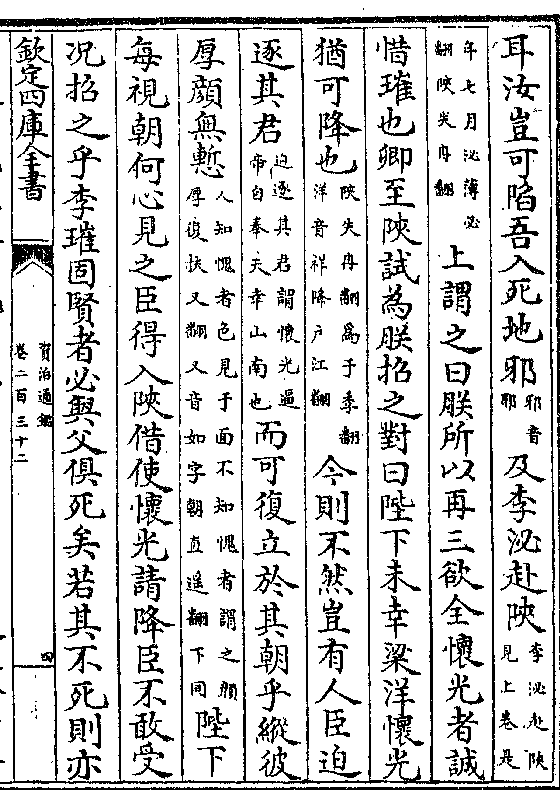 耳汝豈可陷吾入死地邪邪音耶及李泌赴陜李泌赴陜見上卷是
年七月泌薄必翻陜失冉翻上謂之曰朕所以再三欲全懷光者誠
惜璀也卿至陜試為朕招之對曰陛下未幸梁洋懷光
猶可降也陜失冉翻爲于季翻洋音祥降户江翻今則不然豈有人臣迫
逐其君迫逐其君謂懷光逼帝自奉天幸山南也而可復立於其朝乎縱彼
厚顔無慙人知愧者色見于面不知愧者謂之顔厚復扶又翻又音如字朝直遥翻下同陛下
每視朝何心見之臣得入陜借使懷光請降臣不敢受
况招之乎李璀固賢者必與父俱死矣若其不死則亦
欽定四庫全書
資治通鑑
卷二百三十二
四